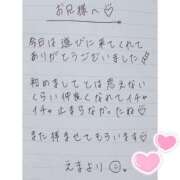 お兄様へ
今日は遊びに来てくれて
ありがとうございました
初めましてとは思えない
くらい仲良くなれてイチャ
イチャ止まらなかったね♡
また拝ませてもらいます
えまより